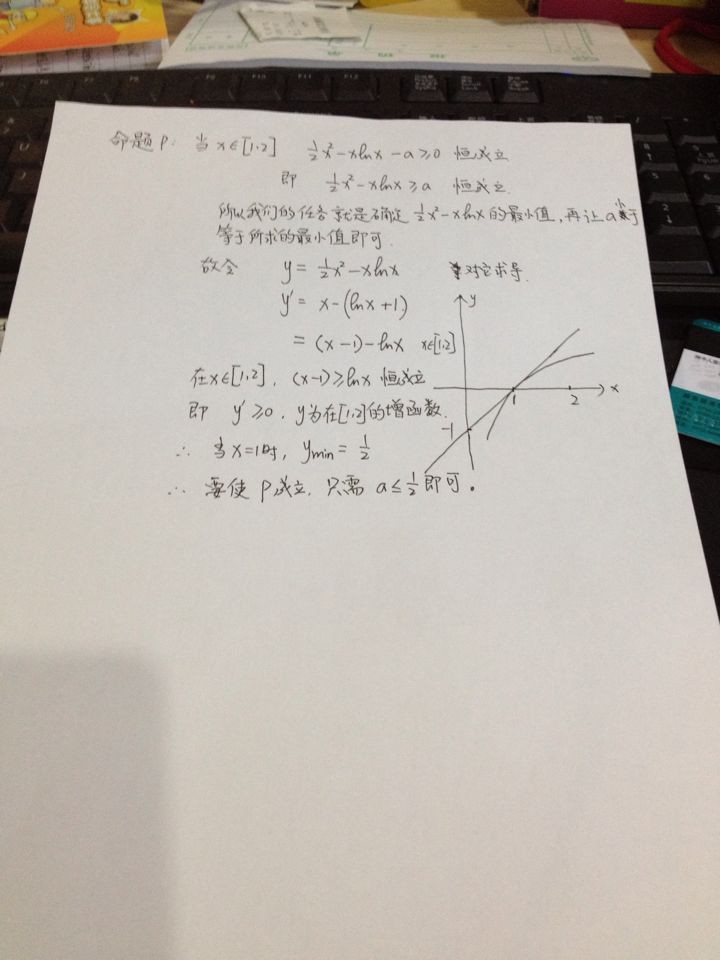 命题P: 当x∈[1,2] ½x²-xlnx-a≥0 恒成立
即 ½x²-xlnx≥a 恒成立.
所以我们的任务就是确定½x²-xlnx的最小值,再让a小于
等于所求的最小值即可.
故令 y=½x²-xlnx 对它求导.
y'=x-(lnx+1)
=(x-1)-lnx x∈[1,2]
在x∈[1,2], (x-1)≥lnx 恒成立
即 y'≥0, y为在[1,2]的增函数.
∴ 当x=1时, ymin=½
∴ 要使P成立, 只需 a≤½即可.
y
x
1
2
-1
F10
F11
F12